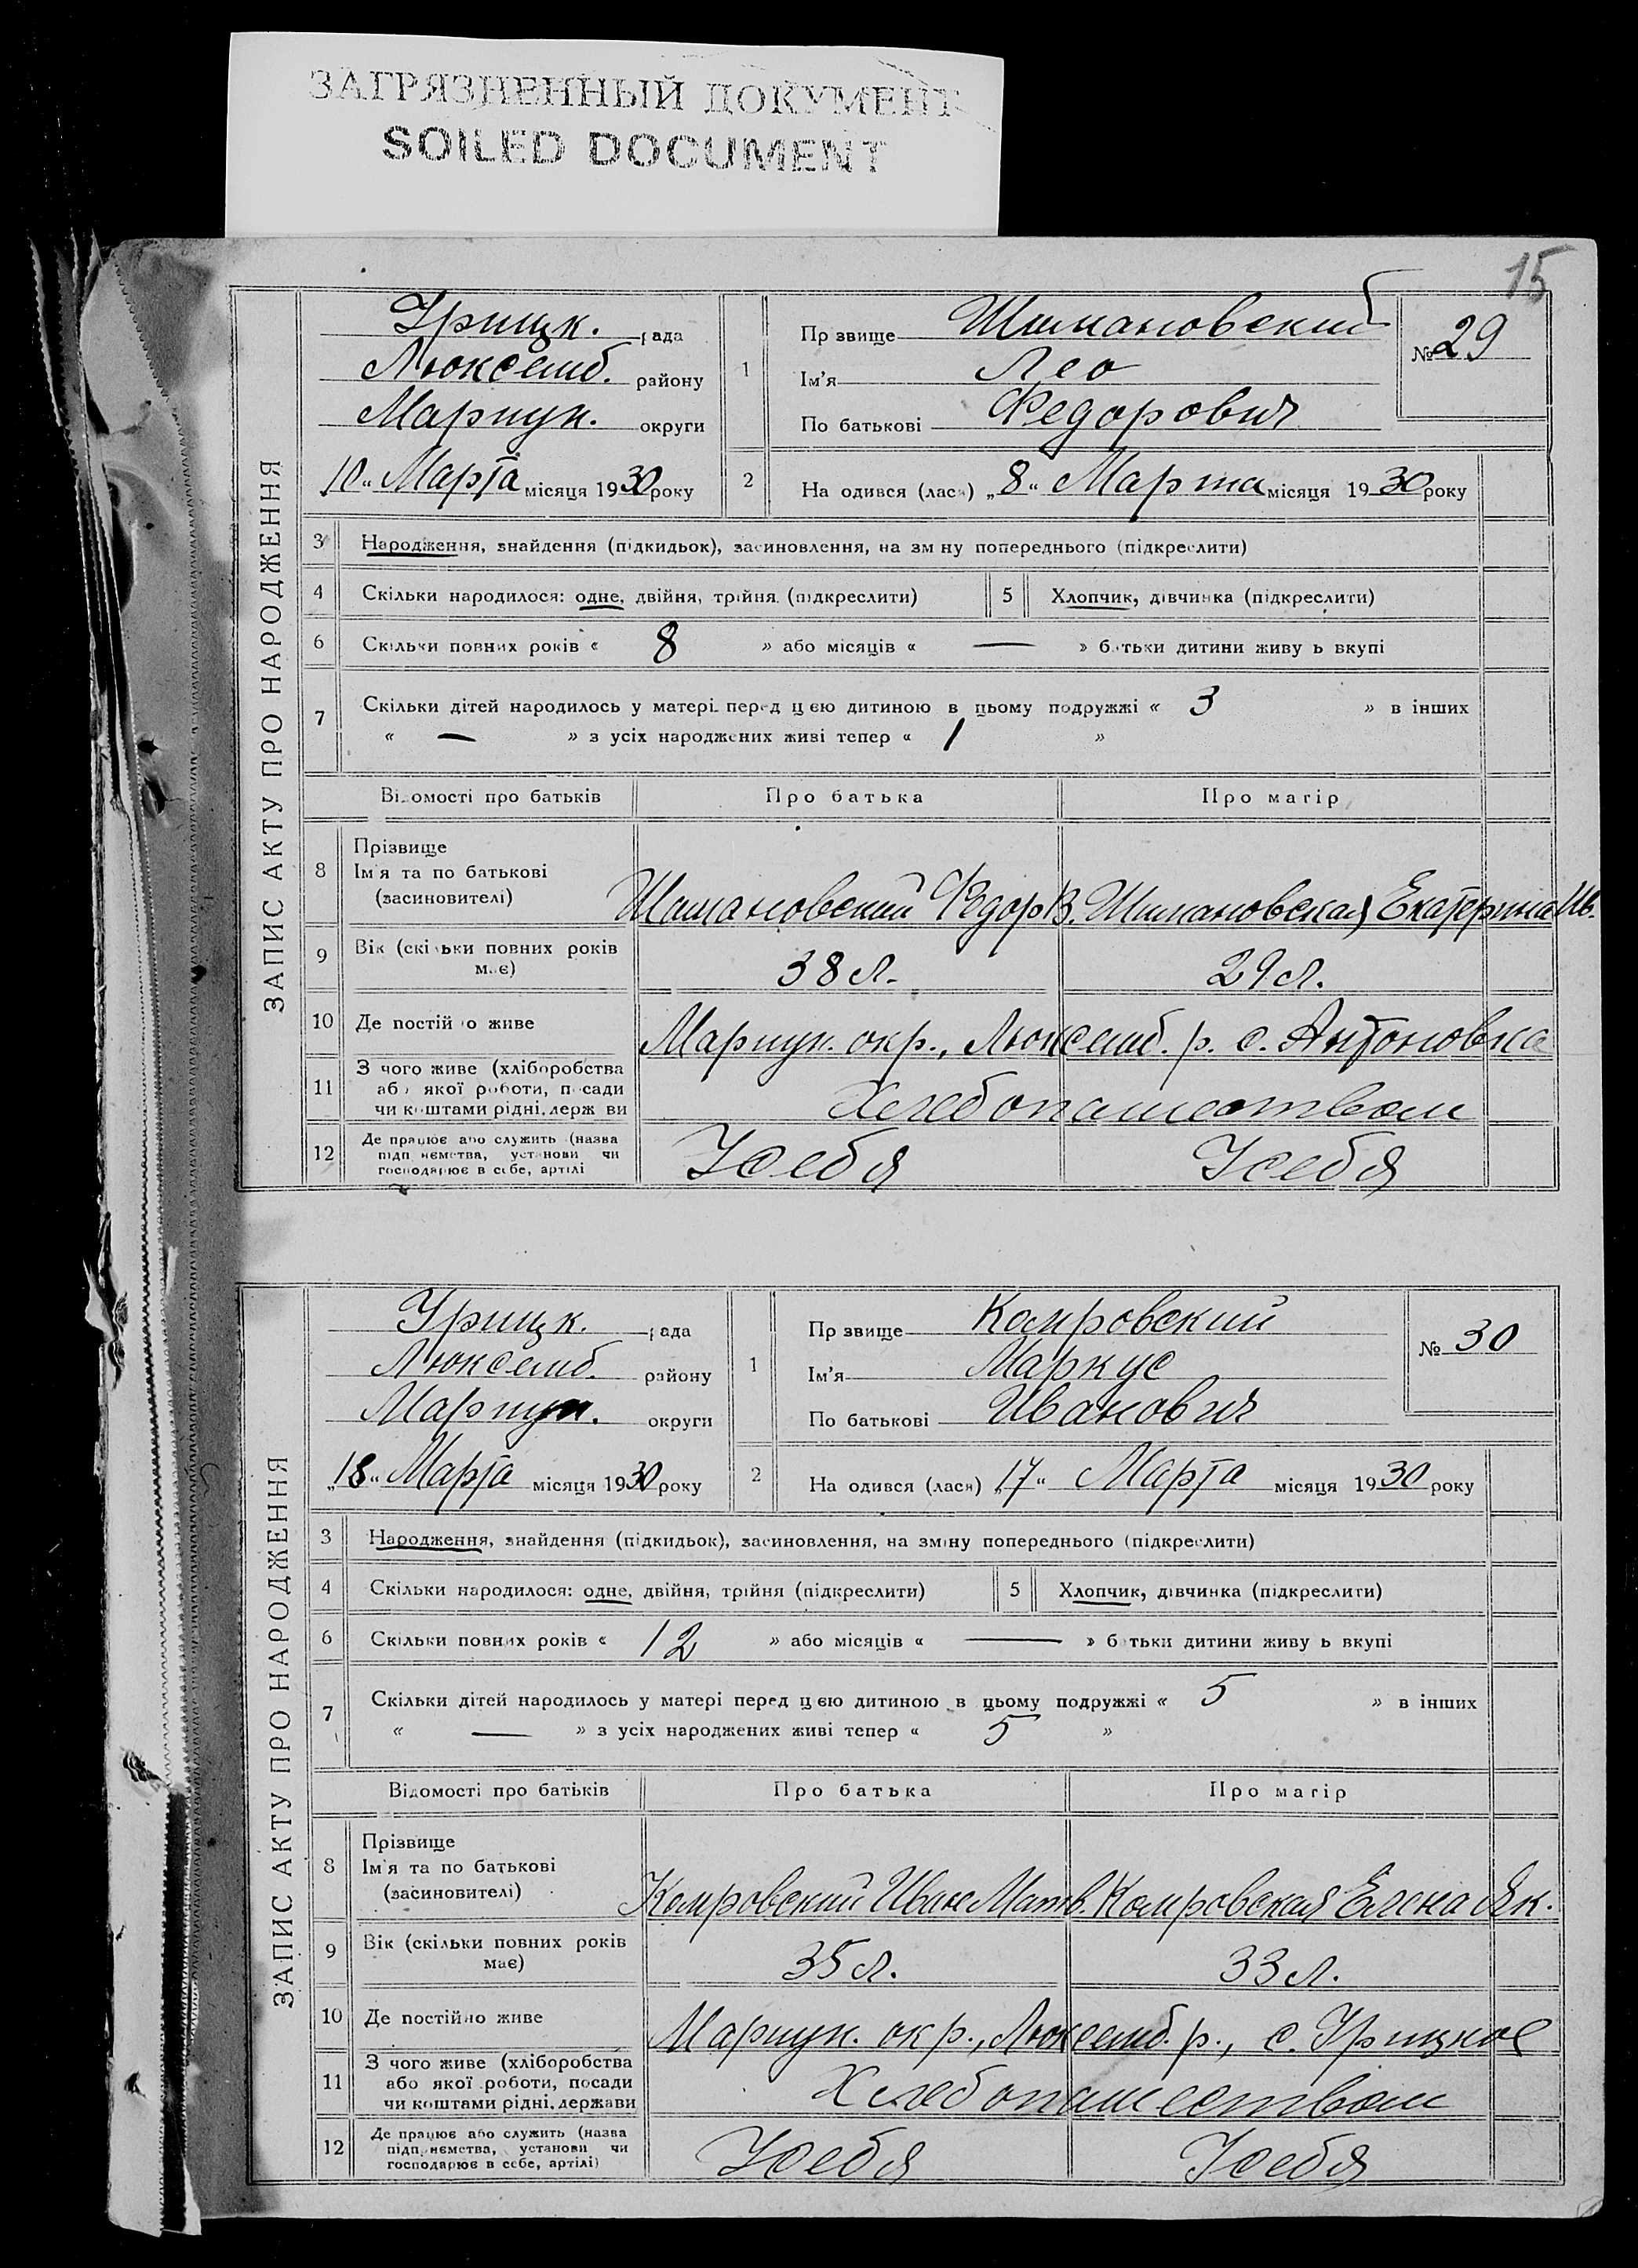 ЗАГРЯЗНЕННЫЙ ДОКУМЕНТ
SOILED DOCUMENT
15
ЗАПИС АКТУ ПРО НАРОДЖЕННЯ
Урицк. рада
Люксемб. району
Мариуп. округи
„10“ Марта місяця 1930 року
1 Пр звище Шимановский
Ім'я Лео
По батькові Федорович
№ 29
2 На одився (лася) „8“ Марта місяця 1930 року
3 Народження, знайдення (підкидьок), засиновлення, на зм ну попереднього (підкреслити)
4 Скільки народилося: одне, двійня, трійня (підкреслити) 5 Хлопчик, дівчинка (підкреслити)
6 Скільки повних років « 8 » або місяців « — » батьки дитини живу ь вкупі
7 Скільки дітей народилось у матері перед цею дитиною в цьому подружжі « 3 » в інших
« — » з усіх народжених живі тепер « 1 »
Відомості про батьків Про батька Про матір
8 Прізвище
Ім'я та по батькові
(засиновителі)
Шимановский Фёдор В. Шимановская Екатерина Ив.
9 Вік (скільки повних років
має)
38 л. 29 л.
10 Де постійно живе Мариуп. окр., Люксемб. р. с. Антоновка
11 З чого живе (хліборобства
або якої роботи, посади
чи коштами рідні, держ ви
Хлебопашеством
12 Де працює або служить (назва
підп иємства, установи чи
господарює в себе, артілі
У себя У себя
ЗАПИС АКТУ ПРО НАРОДЖЕННЯ
Урицк. рада
Люксемб. району
Мариуп. округи
„18“ Марта місяця 1930 року
1 Пр звище Комровский
Ім'я Маркус
По батькові Иванович
№ 30
2 На одився (лася) „17“ Марта місяця 1930 року
3 Народження, знайдення (підкидьок), засиновлення, на зміну попереднього (підкреслити)
4 Скільки народилося: одне, двійня, трійня (підкреслити) 5 Хлопчик, дівчинка (підкреслити)
6 Скільки повних років « 12 » або місяців « — » батьки дитини живу ь вкупі
7 Скільки дітей народилось у матері перед цею дитиною в цьому подружжі « 5 » в інших
« — » з усіх народжених живі тепер « 5 »
Відомості про батьків Про батька Про матір
8 Прізвище
Ім'я та по батькові
(засиновителі)
Комровский Иван Матв. Комровская Елена Як.
9 Вік (скільки повних років
має)
35 л. 33 л.
10 Де постійно живе Мариуп. окр., Люксемб. р., с. Урицкое
11 З чого живе (хліборобства
або якої роботи, посади
чи коштами рідні, держави
Хлебопашеством
12 Де працює або служить (назва
підп иємства, установи чи
господарює в себе, артілі)
У себя У себя